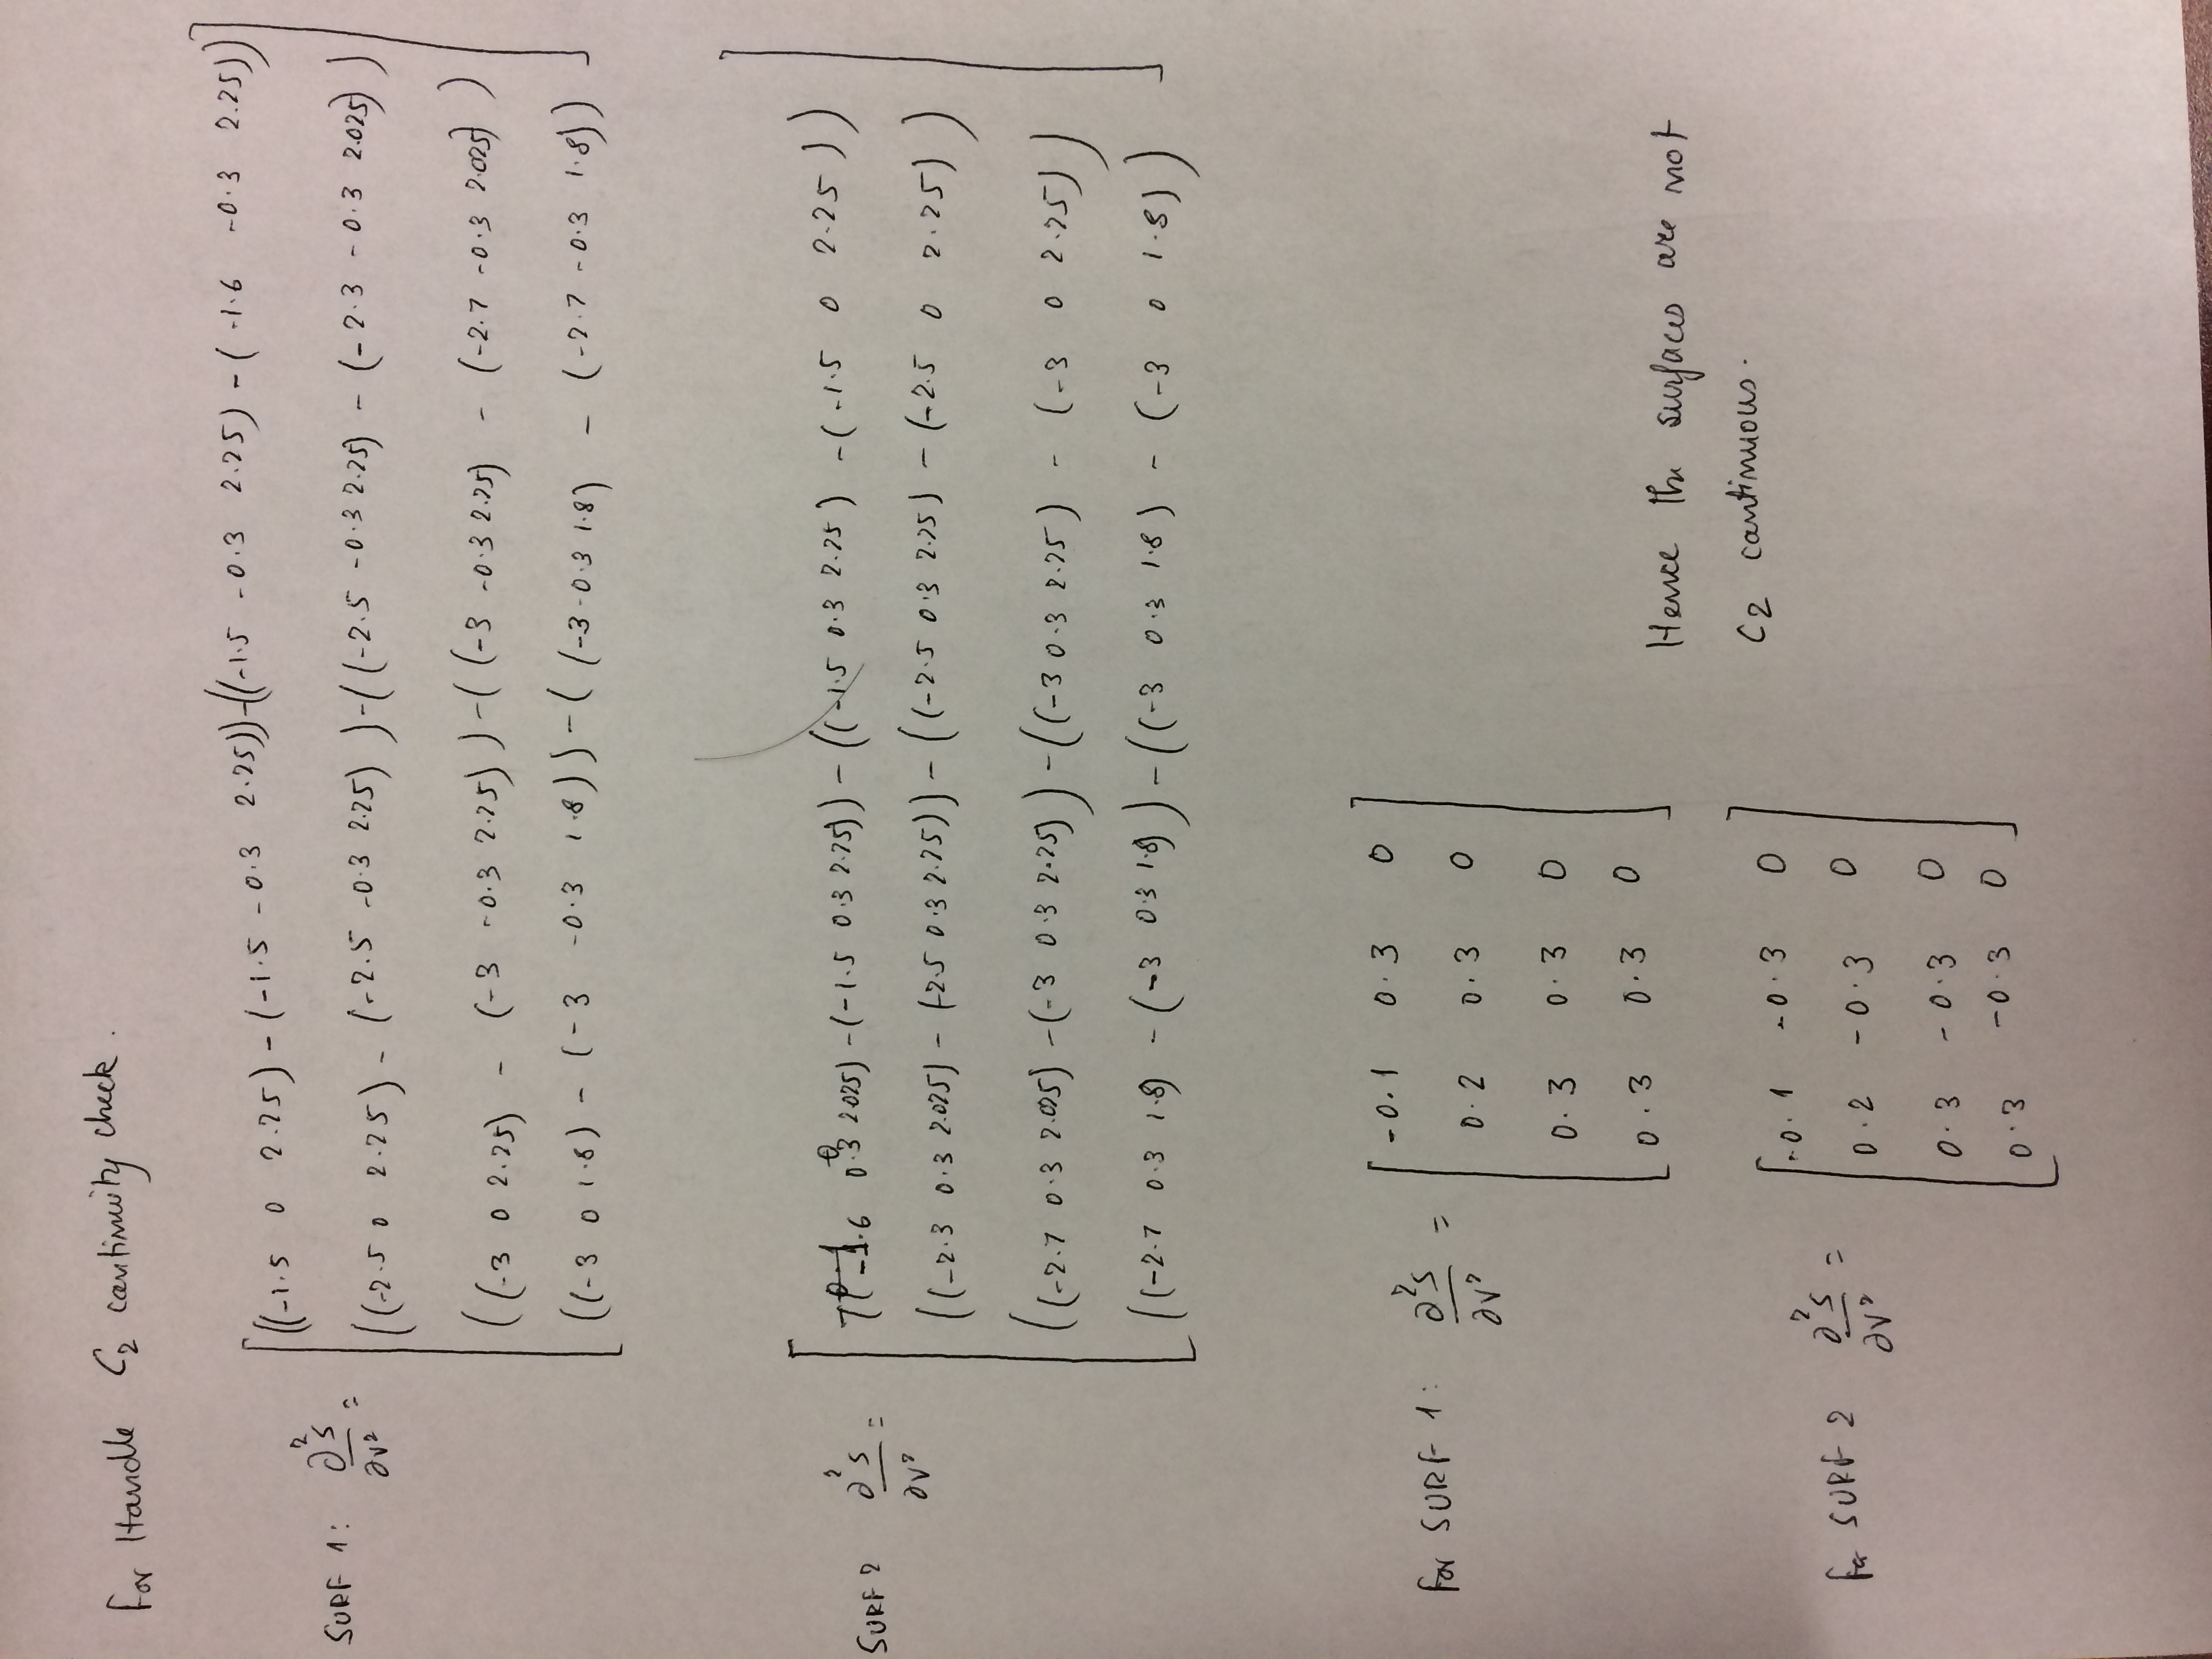 For Handle C2 continuity check.
[((-1.5 0 2.25) - (-1.5 -0.3 2.25)) - ((-1.5 -0.3 2.25) - (-1.6 -0.3 2.25))]
SURF 1: ∂²S/∂v² =
((-2.5 0 2.25) - (-2.5 -0.3 2.25)) - ((-2.5 -0.3 2.25) - (-2.3 -0.3 2.025))
((-3 0 2.25) - (-3 -0.3 2.25)) - ((-3 -0.3 2.25) - (-2.7 -0.3 2.025))
((-3 0 1.8) - (-3 -0.3 1.8)) - ((-3 -0.3 1.8) - (-2.7 -0.3 1.8))
((-1.6 0.3 2.025) - (-1.5 0.3 2.25)) - ((-1.5 0.3 2.25) - (-1.5 0 2.25))
SURF 2 ∂²S/∂v² =
((-2.3 0.3 2.025) - (-2.5 0.3 2.25)) - ((-2.5 0.3 2.25) - (-2.5 0 2.25))
((-2.7 0.3 2.025) - (-3 0.3 2.25)) - ((-3 0.3 2.25) - (-3 0 2.25))
((-2.7 0.3 1.8) - (-3 0.3 1.8)) - ((-3 0.3 1.8) - (-3 0 1.8))
-0.1 0.3 0
For SURF 1: ∂²S/∂v² =
0.2 0.3 0
0.3 0.3 0
0.3 0.3 0
Hence the surfaces are not
C2 continuous.
-0.1 -0.3 0
For SURF 2 ∂²S/∂v² =
0.2 -0.3 0
0.3 -0.3 0
0.3 -0.3 0